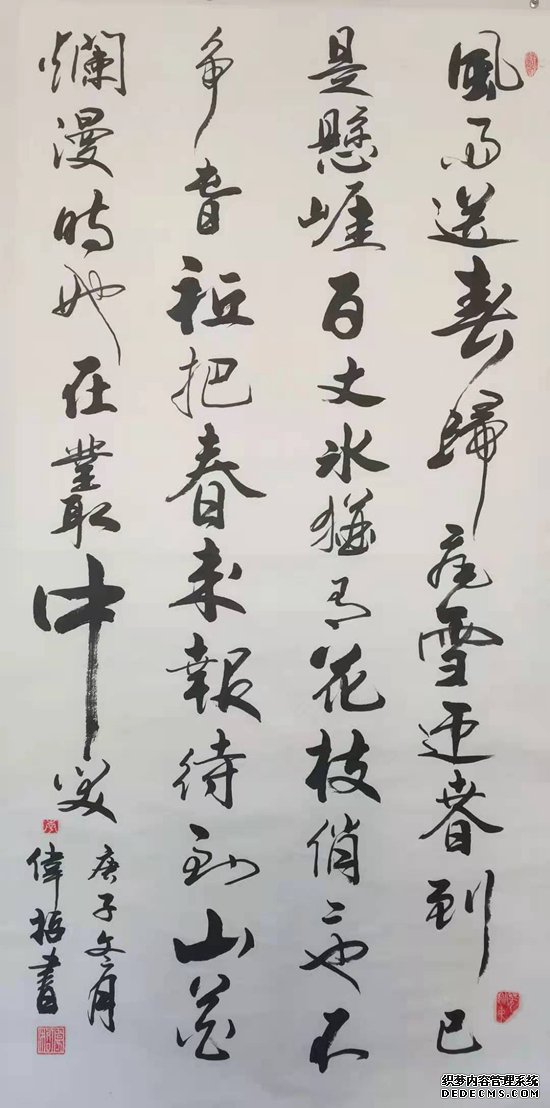 風雨送春歸飛雪迎春到已
是懸崖百丈冰猶有花枝俏〻也不
爭春祗把春来報待到山花
爛漫時她在叢中笑
庚子冬月
偉書
织梦内容管理系统
DEDECMS.COM